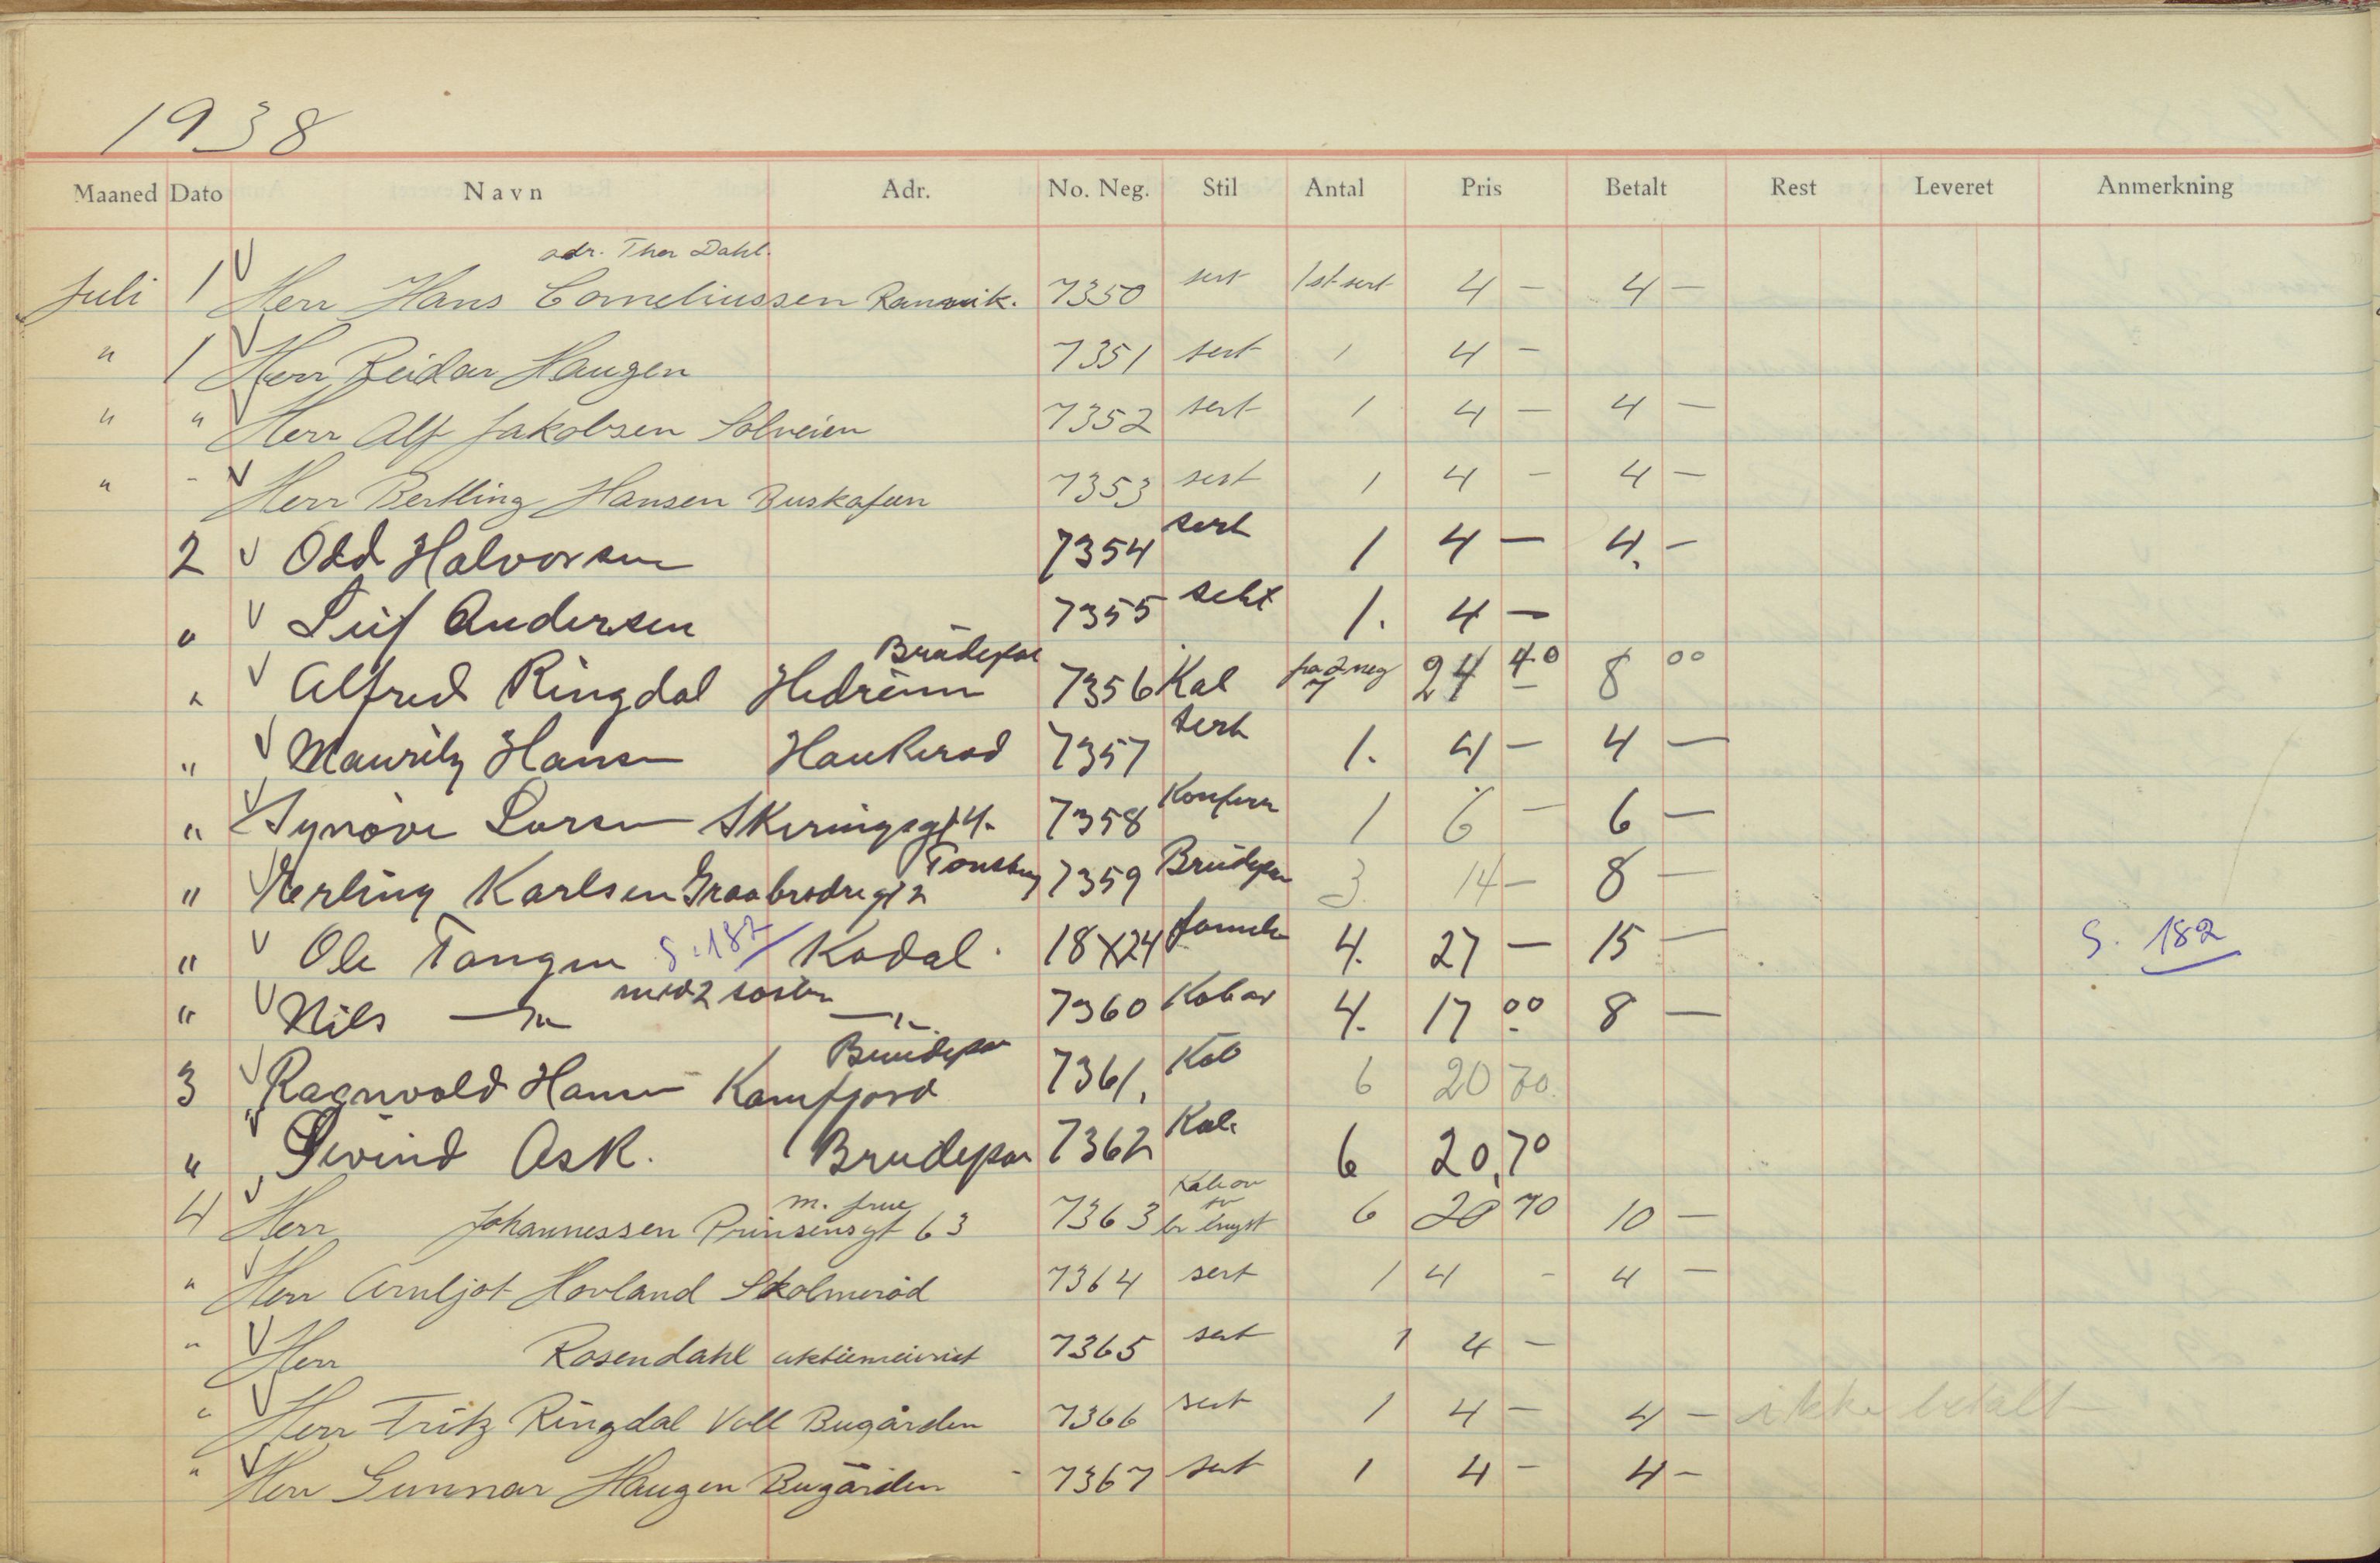 1938
Maaned Dato Navn Adr. No. Neg. Stil Antal Pris Betalt Rest Leveret Anmerkning
adr. Thor Dahl.
Juli 1 V Herr Hans Corneliussen Ranvik. 7350 sert 1 st sert 4 — 4 —
" 1 V Herr Reidar Haugen 7351 sert 1 4 —
" " V Herr Alf Jakobsen Solveien 7352 sert 1 4 — 4 —
" - V Herr Bertling Hansen Buskafeen 7353 sert 1 4 — 4 —
2 V Odd Halvorsen 7354 sert 1 4 — 4. —
" V Leif Andersen 7355 sert 1. 4 —
Brudepar
" V Alfred Ringdal Hedrum 7356 Kab fra 2 neg 7 24 40 8 00
" V Mauritz Hansen Haukerød 7357 sert 1. 4 — 4 —
" V Synøve Larsen Skiringsgt 4. 7358 Konfirm 1 6 — 6 —
" V Erling Karlsen Graabrødregt 2 Tønsberg 7359 Brudepar 3 14 — 8 —
" V Ole Tangen S. 182 Kodal. 18x24 famile 4. 27 — 15 — S. 182
med 2 søstre
" V Nils —"— —"— 7360 Kabar 4. 17 00 8 —
Brudepar
3 V Ragnvald Hansen Kamfjord 7361. Kab 6 20 70
" V Øivind Ask. Brudepar 7362 Kab 6 20,70
m. frue
4 V Herr Johannessen Prinsensgt 63 7363 br bryst 6 20 70 10 —
" V Herr Arnljot Hovland Skolmerød 7364 sert 1 4 - 4 —
" V Herr Rosendahl aktiemeieriet 7365 sert 1 4 —
" V Herr Fritz Ringdal Voll Bugården 7366 sert 1 4 — 4 — ikke betalt
" V Herr Gunnar Haugen Bugården - 7367 sert 1 4 — 4 —